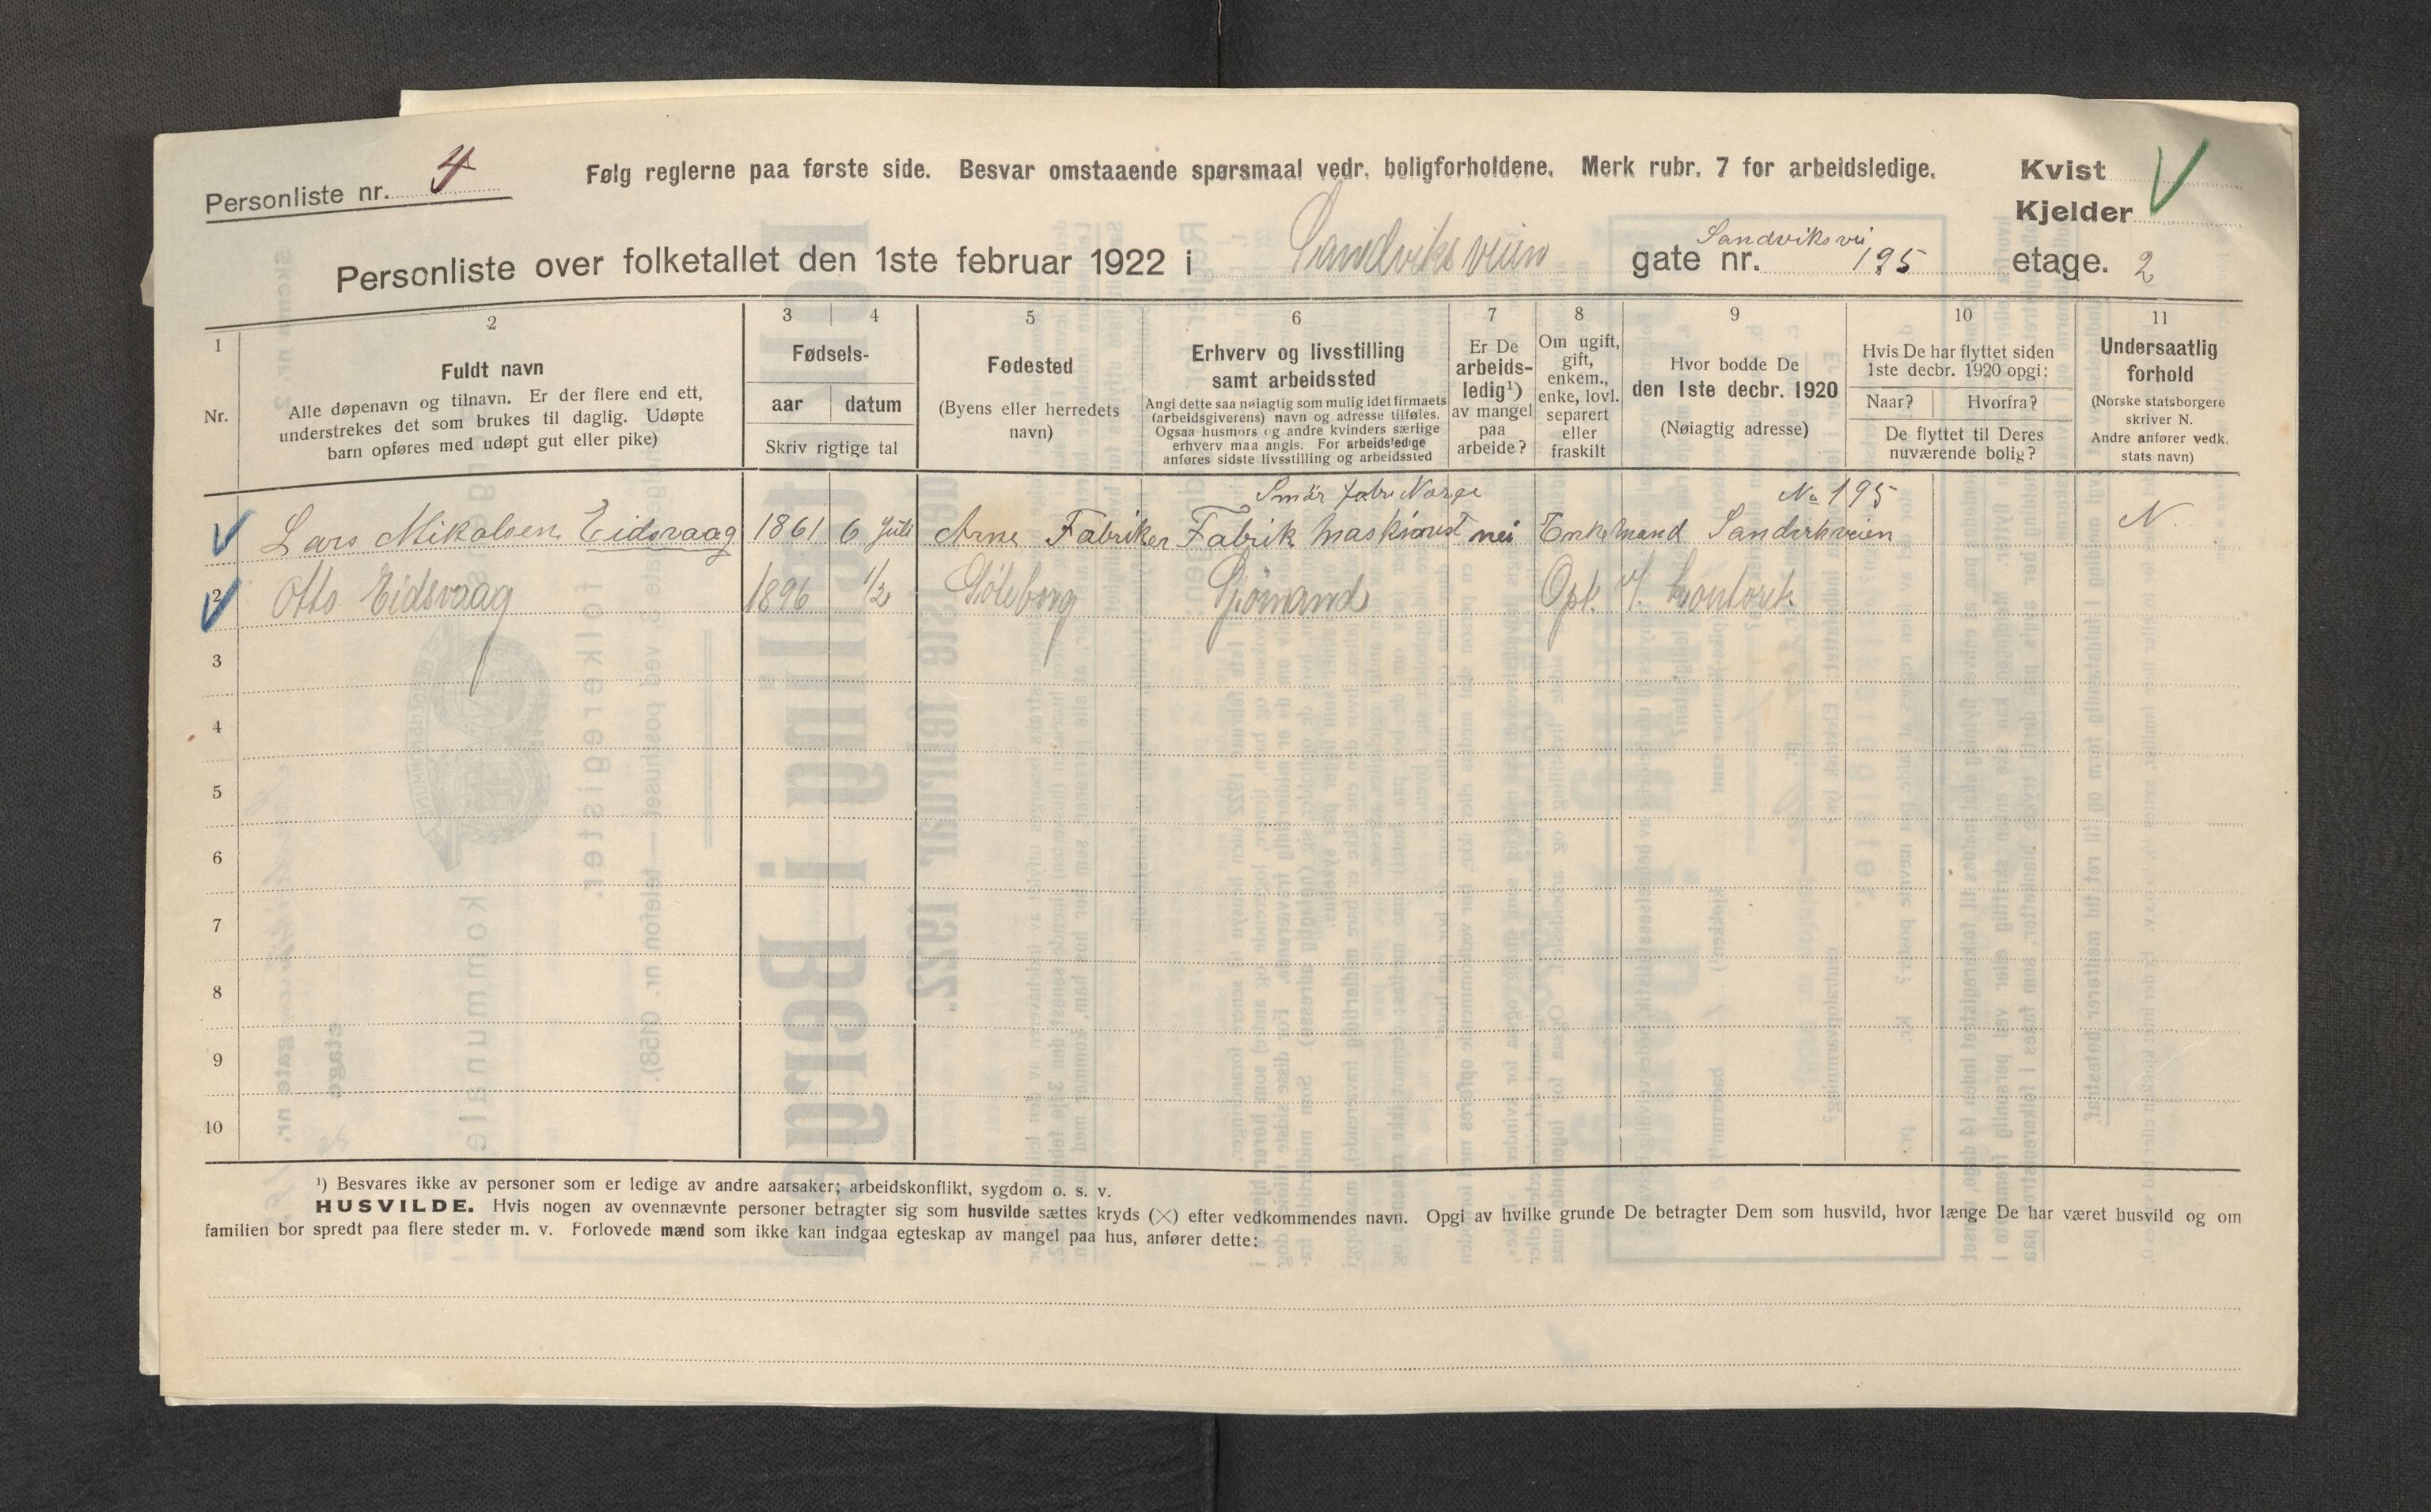 Personliste nr. 4
Følg reglerne paa første side. Besvar omstaaende spørsmaal vedr. boligforholdene. Merk rubr. 7 for arbeidsledige.
Kvist
Kjelder
Personliste over folketallet den 1ste februar 1922 i Sandviksveien gate nr. Sandviksvei 195 etage. 2
1
Nr.
2
Fuldt navn
Alle døpenavn og tilnavn. Er der flere end ett,
understrekes det som brukes til daglig. Udøpte
barn opføres med udøpt gut eller pike)
3 4
Fødsels-
aar datum
Skriv rigtige tal
5
Fødested
(Byens eller herredets
navn)
6
Erhverv og livsstilling
samt arbeidssted
Angi dette saa nøiagtig som mulig idet firmaets
(arbeidsgiverens) navn og adresse tilføies.
Ogsaa husmors og andre kvinders særlige
erhverv maa angis. For arbeidsledige
anføres sidste livsstilling og arbeidssted
7
Er De
arbeids-
ledig¹)
av mangel
paa
arbeide?
8
Om ugift,
gift,
enkem.,
enke, lovl.
separert
eller
fraskilt
9
Hvor bodde De
den 1ste decbr. 1920
(Nøiagtig adresse)
10
Hvis De har flyttet siden
1ste decbr. 1920 opgi:
Naar? Hvorfra?
De flyttet til Deres
nuværende bolig?
11
Undersaatlig
forhold
(Norske statsborgere
skriver N.
Andre anfører vedk.
stats navn)
Smör fabr Norge No 195
Lars Mikalsen Eidsvaag 1861 6 Juli Arne Fabriker Fabrik Maskinist nei Enkemand N.
2 Otto Eidsvaag 1896 1/2 Sjömand Opt. v/
3
4
5
6
7
8
9
10
¹) Besvares ikke av personer som er ledige av andre aarsaker; arbeidskonflikt, sygdom o. s. v.
HUSVILDE. Hvis nogen av ovennævnte personer betragter sig som husvilde sættes kryds (×) efter vedkommendes navn. Opgi av hvilke grunde De betragter Dem som husvild, hvor længe De har været husvild og om
familien bor spredt paa flere steder m. v. Forlovede mænd som ikke kan indgaa egteskap av mangel paa hus, anfører dette: